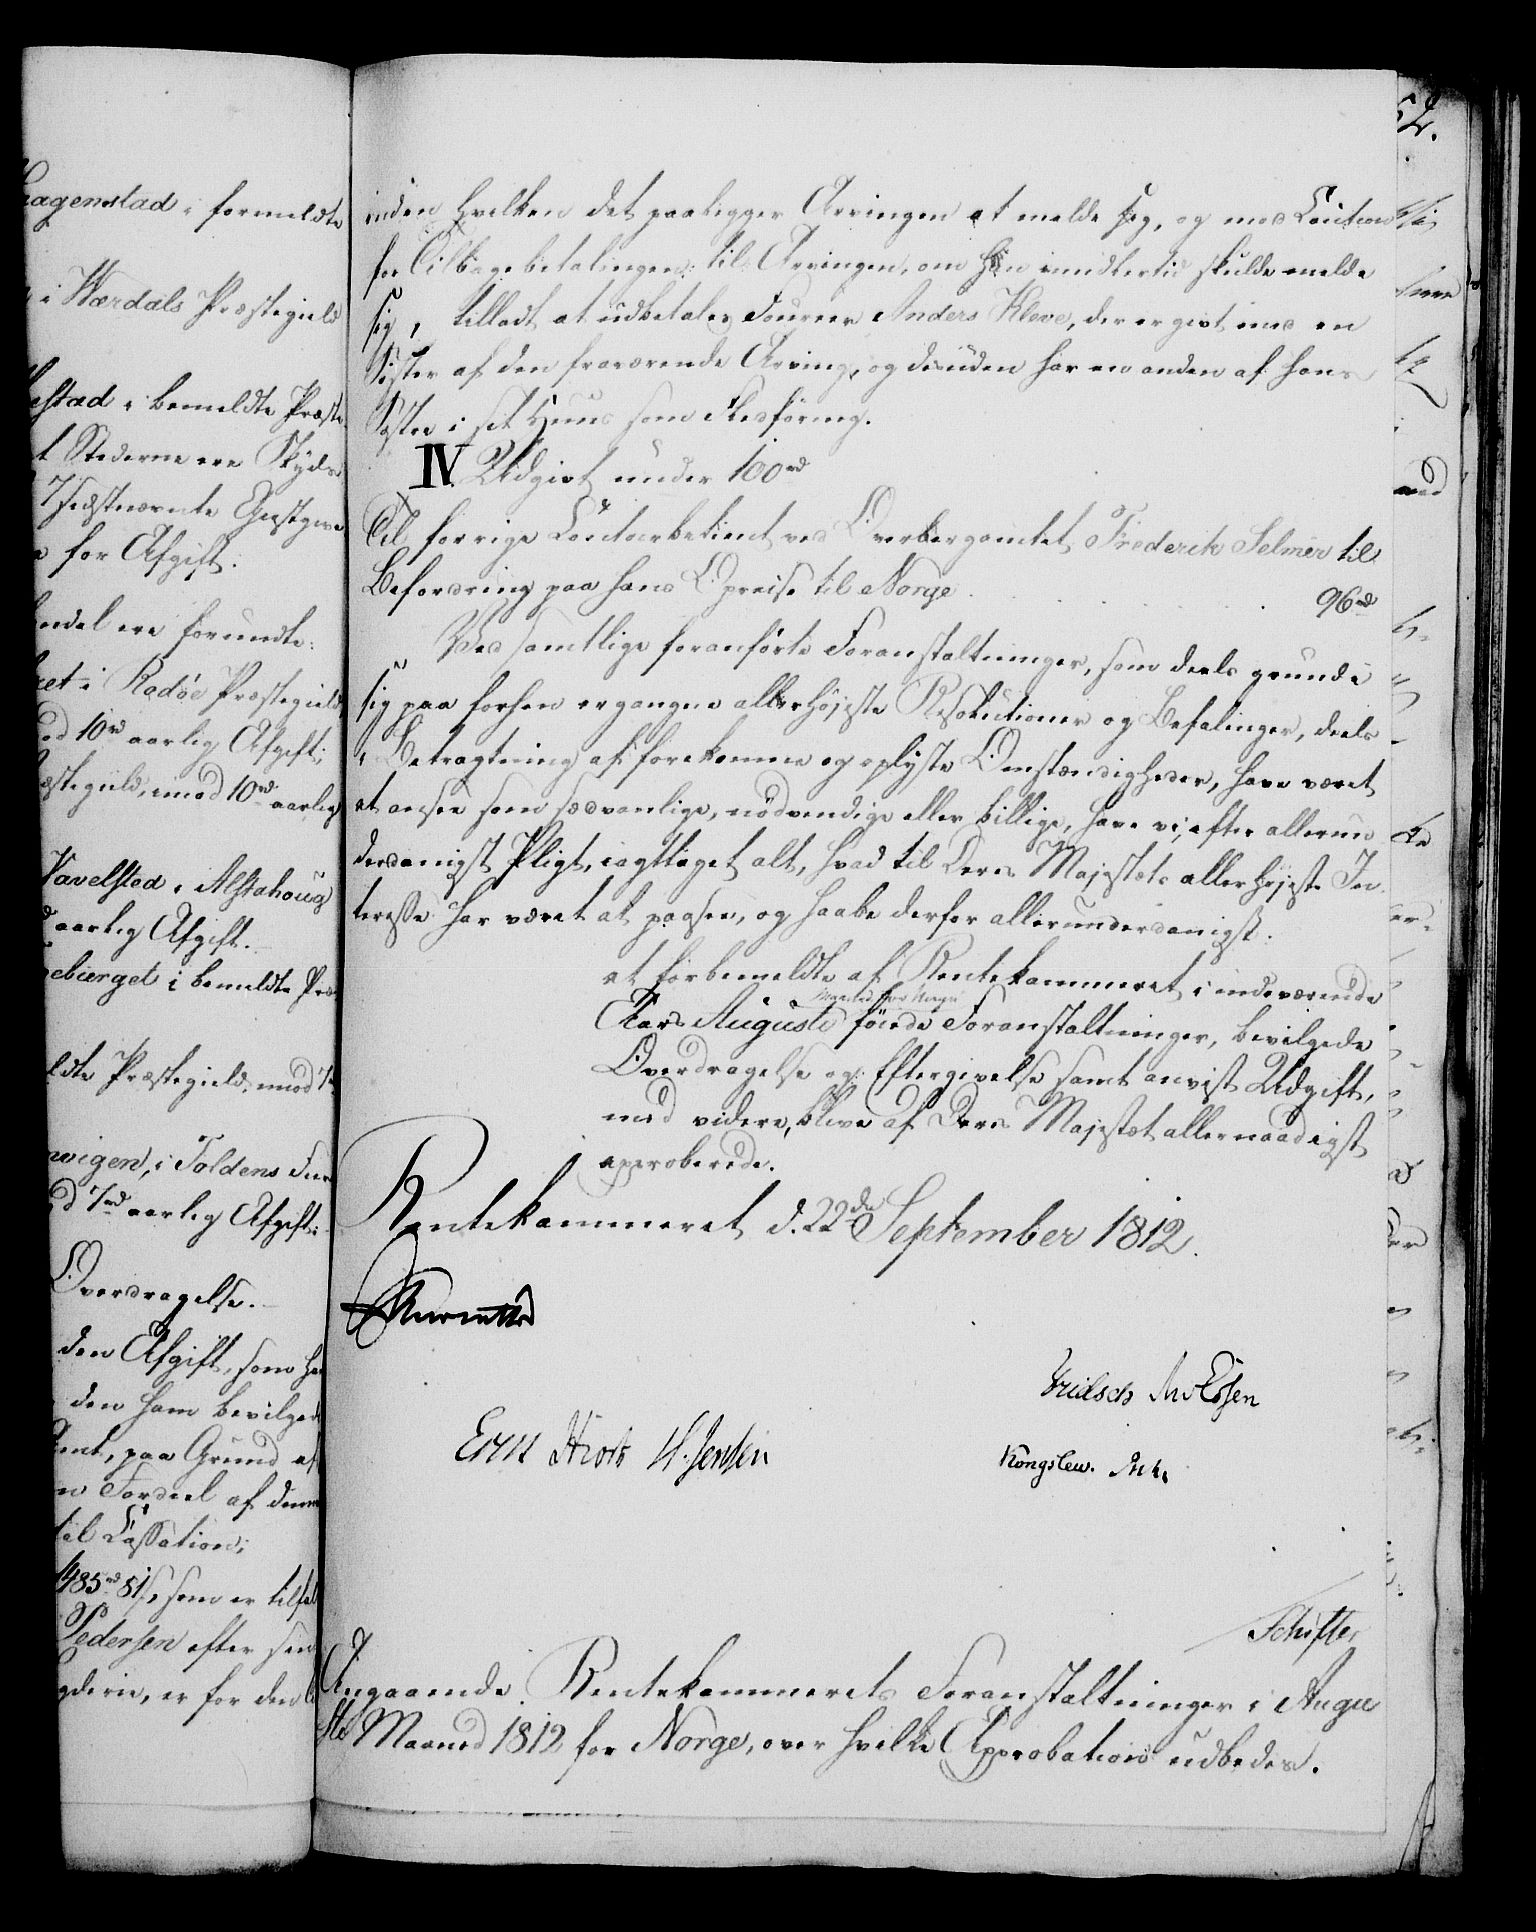 hagenstad i formeldte
i Værdals Præstegield
estad i bemeldte Præste
t Stederne ere Skyds
7 sidstnævnte Gæstgive
for Afgift.
endel ere forundte:
et i Radøe Præstegield,
10rd aarlig Afgift;
æstegield, imod 10rd aarlig
Vavelsted i Alstahoug
aarlig Afgift.
ebierget i bemeldte Præ
ldte Præstegield, imod 7
nvigen, i Foldens Fier
7rd aarlig Afgift:
Overdragelse.
den Afgift, som ha
den ham bevilgede
paa Grund af
n Fordeel af denne
til Cassation;
485rd 81s, som er tilfal
Pedersen efter sin
er for den
52.
inden hvilken det paaligger Arvingen at melde sig, og mod Caution
for Tilbagebetalingen til Arvingen, om han imidlertid skulde melde
sig, tilladt at udbetales Fourer Anders Kleve, der er givt med en
Søster af den fraværende Arving, og desuden har en anden af hans
Søstre i sit Huus som Ilesføring.
IV. Udgivt under 100rd
Til forrige Contoirbetient ved Overbergamtet Frederik Selmer til
Befordring paa hans Opreise til Norge . . . 96rd
Ved samtlige foranførte Foranstaltninger, som deels grunde
sig paa forhen ergangne allerhøjeste Resolutioner og Befalinger, deels
i Betragtning af forekomne og oplyste Omstændigheder, have været
at ansee som sædvanlige, nødvendige eller billige, have vi, efter allerun
derdanigst Pligt, iagttaget alt, hvad til Deres Majestæts allerhøjeste In
teresse har været at paasee, og haabe derfor allerunderdanigst:
at forbemeldte af Rentekammeret i indeværende
Maaned for Norge
Aars Augusti føiede Foranstaltninger, bevilgede
Overdragelse og Eftergivelse samt anvist Udgift,
med videre, bliver af Deres Majestæt allernaadigst
approberede.
Rentekammeret d. 22de September 1812.
Hiort H. Jensen
Schifter
Angaaende Rentekammerets Foranstaltninger i Augu
sti Maaned 1812 for Norge, over hvilke Approbation udbedes.